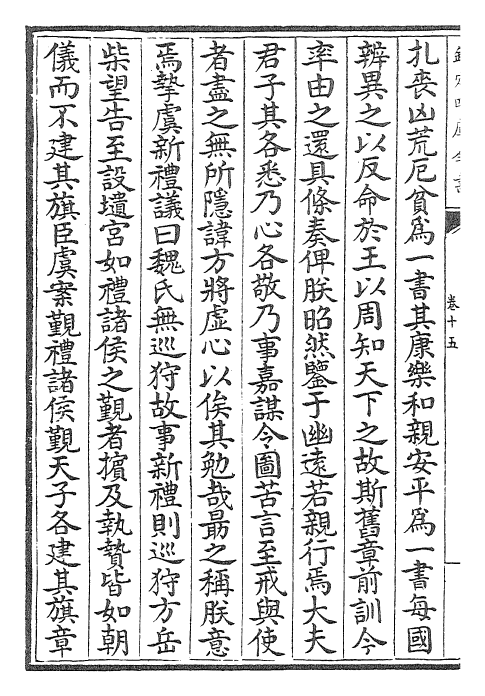 欽定四庫全書
卷十五
扎喪凶荒厄貧為一書其康樂和親安平為一書每國
辨異之以反命於王以周知天下之故斯舊章前訓今
率由之還具條奏俾朕昭然鑒于幽遠若親行焉大夫
君子其各悉乃心各敬乃事嘉謀令圖苦言至戒與使
者盡之無所隱諱方將虛心以俟其勉哉朂之稱朕意
焉摯虞新禮議曰魏氏無巡狩故事新禮則巡狩方岳
柴望告至設壝宮如禮諸侯之覲者擯及執贄皆如朝
儀而不建其旗臣虞案覲禮諸侯覲天子各建其旗章